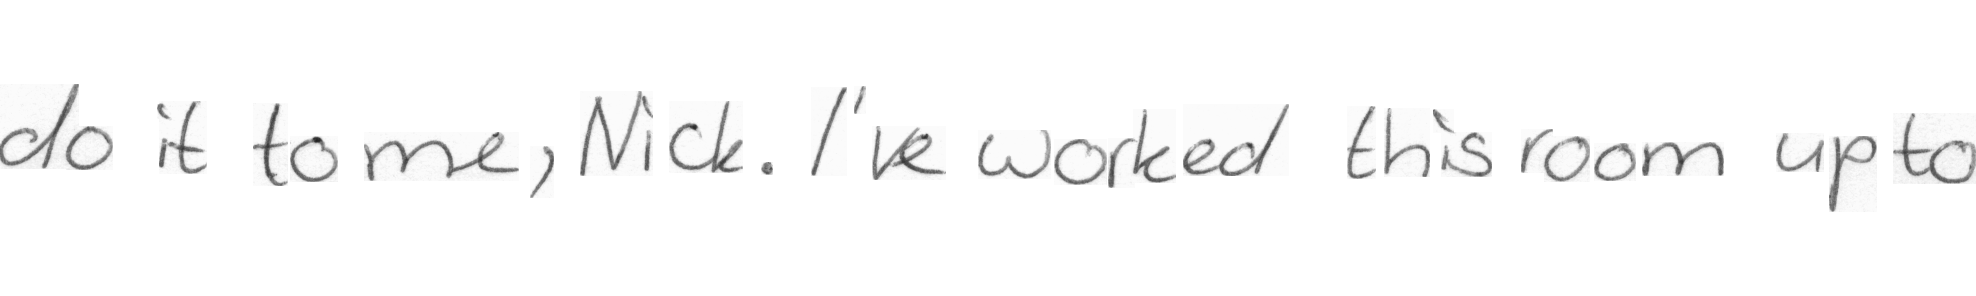 do it to me, Nick. I've worked this room up to